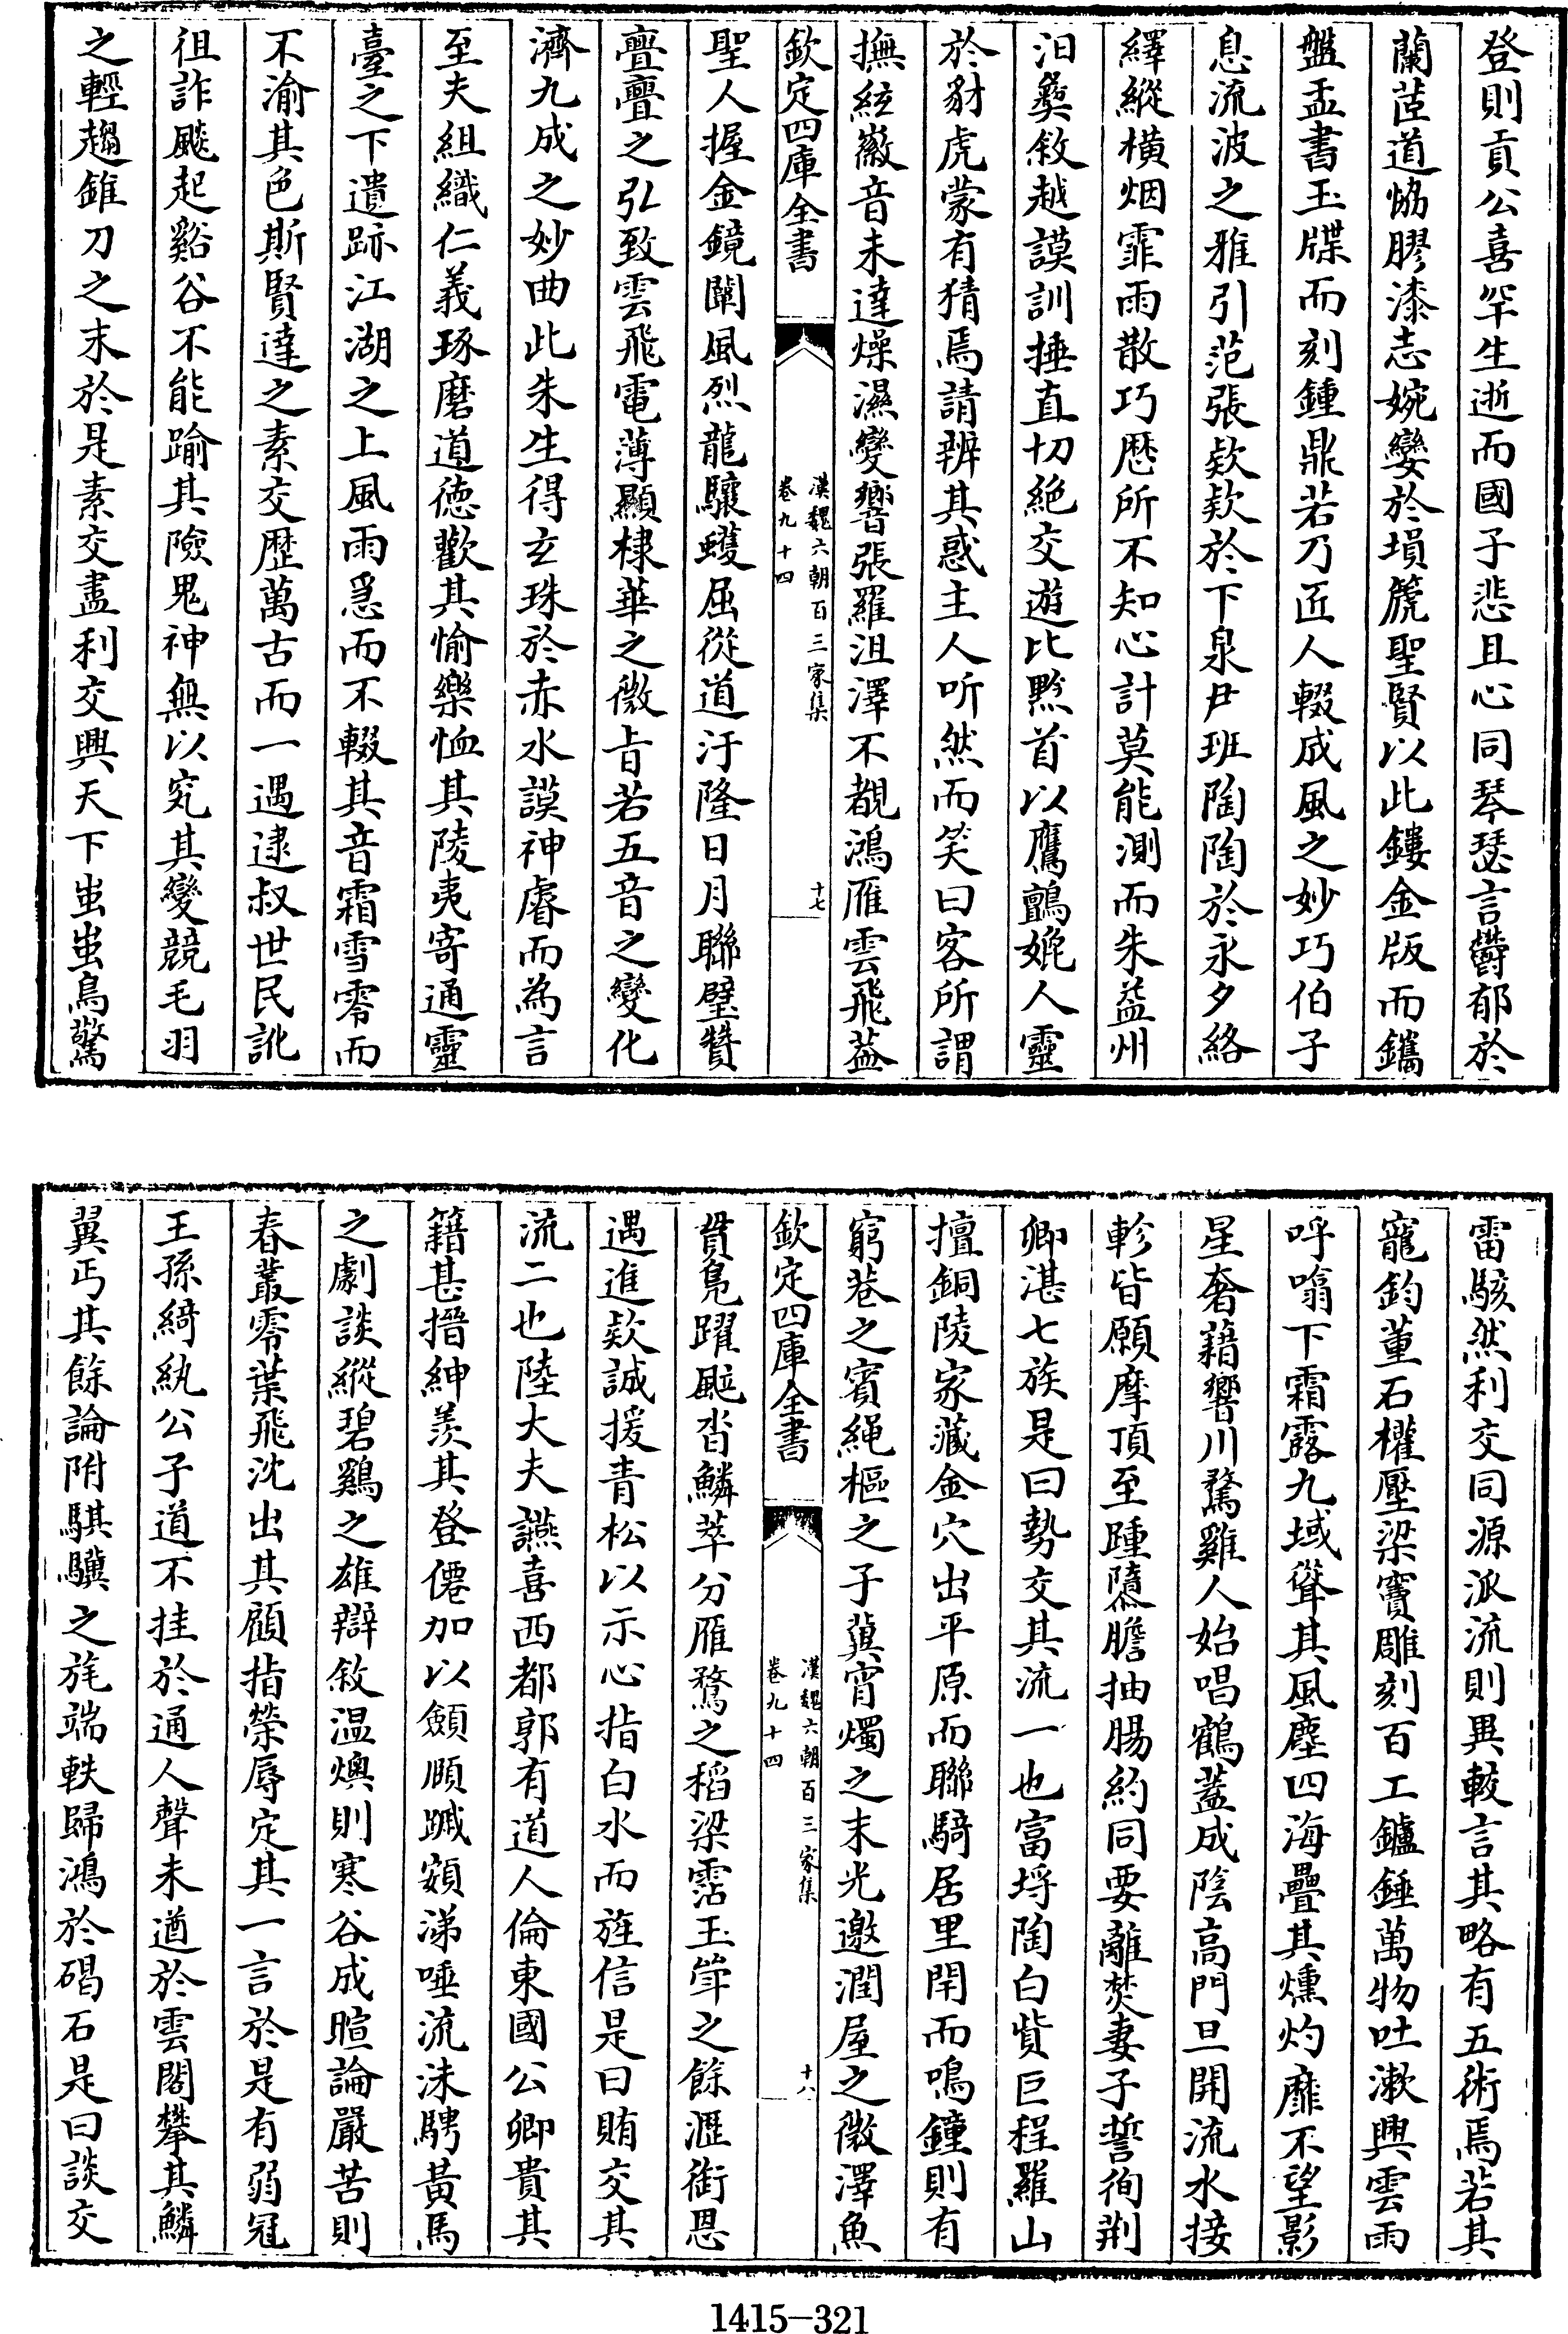 登則貢公喜罕生逝而國子悲且心同琴瑟言鬱郁於
蘭茝道恊膠漆志婉孌於塤篪聖賢以此鏤金版而鐫
盤盂書玉牒而刻鍾鼎若乃匠人輟成風之妙巧伯子
息流波之雅引范張欵欵於下泉尹班陶陶於永夕絡
繹縱橫烟霏雨散巧厯所不知心計莫能測而朱益州
汨彜敘越謨訓捶直切絶交遊比黔首以鷹鸇媲人靈
於豺虎蒙有猜焉請辨其惑主人听然而笑曰客所謂
撫絃徽音未達燥濕變響張羅沮澤不覩鴻雁雲飛葢
欽定四庫全書
漢魏六朝百三家集
卷九十四
十七
聖人握金鏡闡風烈龍驤蠖屈從道汙隆日月聯璧贊
亹亹之弘致雲飛電薄顯棣華之微㫖若五音之變化
濟九成之妙曲此朱生得玄珠於赤水謨神睿而為言
至夫組織仁義琢磨道徳歡其愉樂恤其陵夷寄通靈
臺之下遺跡江湖之上風雨急而不輟其音霜雪零而
不渝其色斯賢達之素交歴萬古而一遇逮叔世民訛
徂詐飈起谿谷不能踰其險鬼神無以究其變競毛羽
之輕趨錐刀之末於是素交盡利交興天下蚩蚩鳥驚
雷駭然利交同源派流則異較言其略有五術焉若其
寵鈞董石權壓梁竇雕刻百工鑪錘萬物吐漱興雲雨
呼噏下霜露九域聳其風塵四海疊其燻灼靡不望影
星奔藉響川騖雞人始唱鶴蓋成陰高門旦開流水接
軫皆願摩頂至踵隳膽抽腸約同要離焚妻子誓徇荆
卿湛七族是曰勢交其流一也富埒陶白貲巨程羅山
擅銅陵家藏金穴出平原而聯騎居里閈而鳴鐘則有
窮巷之賓繩樞之子冀宵燭之末光邀潤屋之微澤魚
欽定四庫全書
漢魏六朝百三家集
卷九十四
十八
貫鳬躍颯沓鱗萃分雁鶩之稻梁霑玉斝之餘瀝銜恩
遇進欵誠援青松以示心指白水而旌信是曰賄交其
流二也陸大夫讌喜西都郭有道人倫東國公卿貴其
籍甚搢紳羨其登僊加以顩頤蹙頞涕唾流沫騁黃馬
之劇談縱碧鷄之雄辯敘温燠則寒谷成暄論嚴苦則
春叢零葉飛沈出其顧指榮辱定其一言於是有弱冠
王孫綺紈公子道不挂於通人聲未遒於雲閣攀其鱗
翼丐其餘論附騏驥之旄端軼歸鴻於碣石是曰談交
1415-321